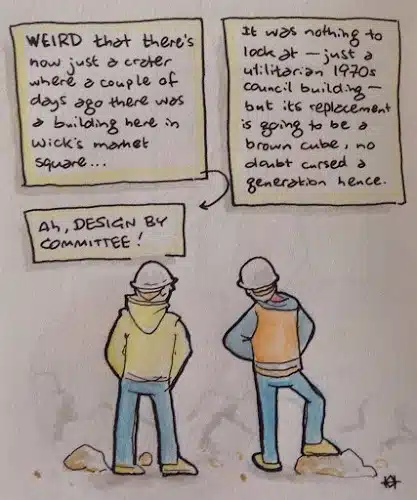 WEIRD that there's
now just a crater
where a couple of
days ago there was
a building here in
Wick's market
square...
It was nothing to
look at – just a
utilitarian 1970s
council building –
but its replacement
is going to be a
brown cube, no
doubt cursed a
generation hence.
Ah, DESIGN BY
COMMITTEE!